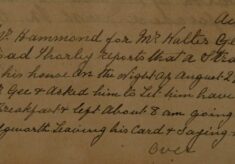 Au
Mr Hammond for Mr Walter Gee
oad Thorley reports that a Stra
his house on the Night of August 2
Gee & Asked him to Let him have
Breakfast & left About 8 am going
dgworth Leaving his Card & Saying
Over